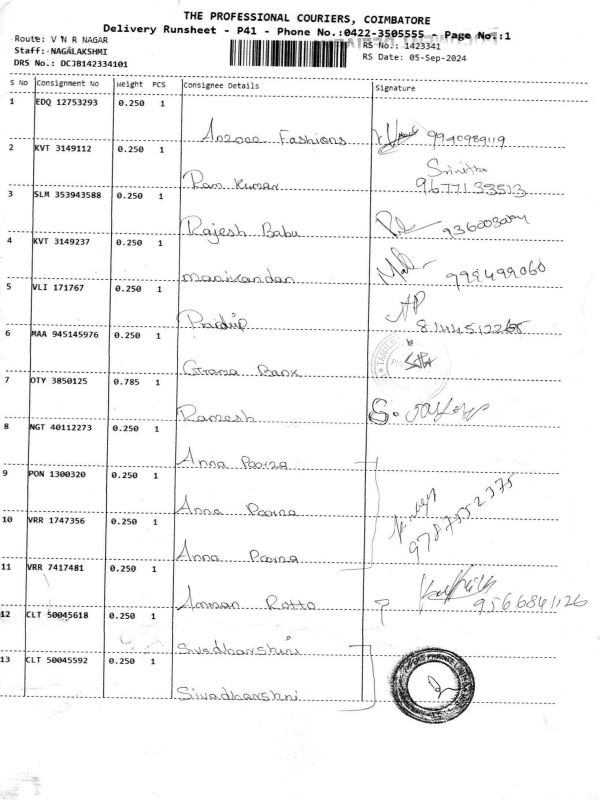 THE PROFESSIONAL COURIERS, COIMBATORE
Delivery Runsheet - P41 - Phone No.:0422-3505555 Page No.:1
Route: V N R NAGAR
Staff: NAGALAKSHMI
DRS No.: DCJB142334101
RS No.: 1423341
RS Date: 05-Sep-2024
S No Consignment No Weight PCS Consignee Details Signature
1 EDQ 12753293 0.250 1
Fashions 9940989119
2 KVT 3149112 0.250 1
Srinitha
Ram Kumar 9677133513
3 SLM 353943588 0.250 1
Rajesh Babu
4 KVT 3149237 0.250 1
Manikandan
5 VLI 171767 0.250 1
AP
6 MAA 945145976 0.250 1
Grama Bank
7 OTY 3850125 0.785 1
Ramesh S.
8 NGT 40112273 0.250 1
Anna Poorna
9 PON 1300320 0.250 1
Anna Poorna
9787552375
10 VRR 1747356 0.250 1
Anna Poorna
11 VRR 7417481 0.250 1
Amman Rotto 9566841126
12 CLT 50045618 0.250 1
Sivadharshini
13 CLT 50045592 0.250 1
Sivadharshni